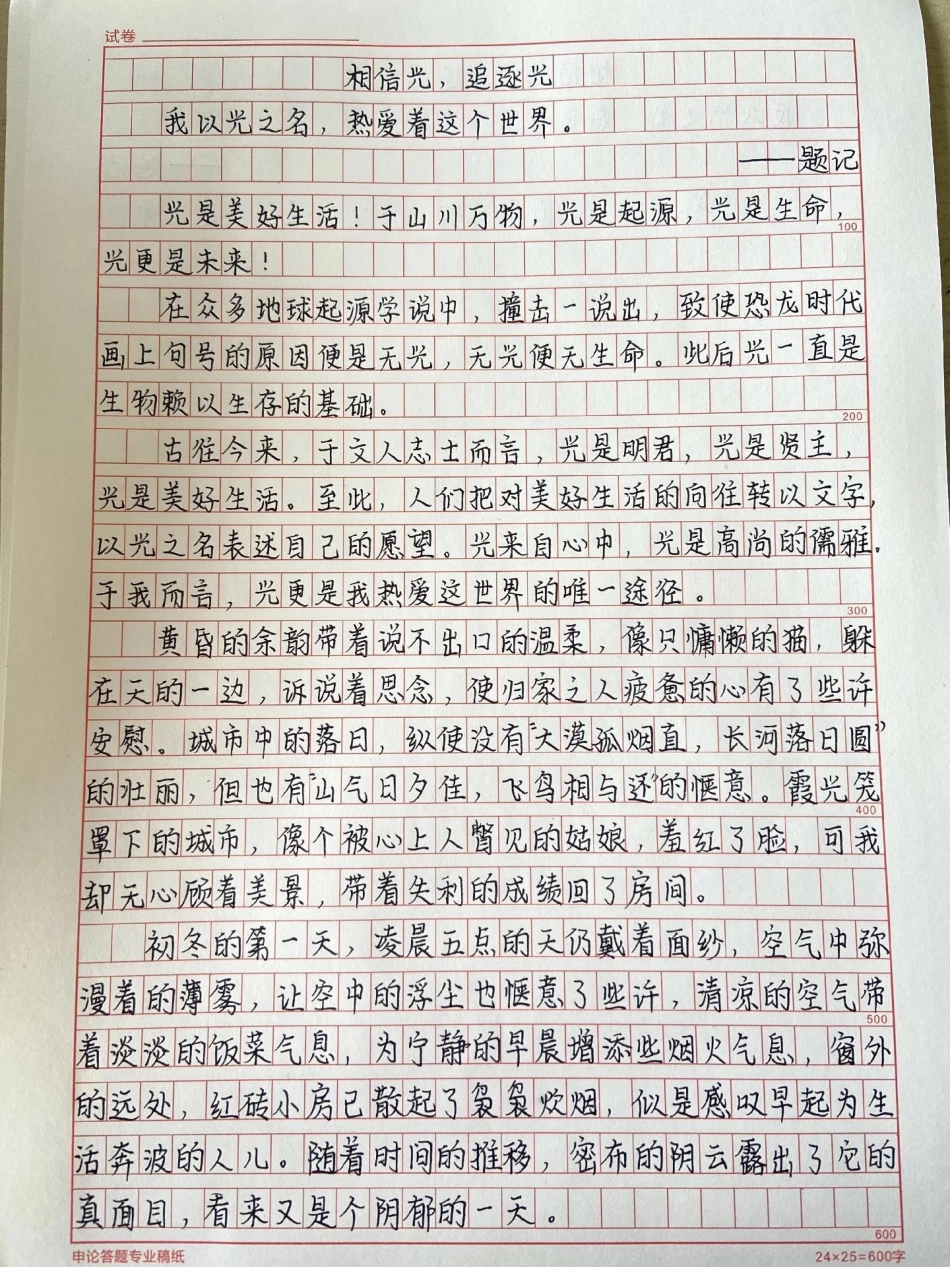 试卷
相信光，追逐光
我以光之名，热爱着这个世界。
——题记
光是美好生活！于山川万物，光是起源，光是生命，
100
光更是未来！
在众多地球起源学说中，撞击一说出，致使恐龙时代
画上句号的原因便是无光，无光便无生命。此后光一直是
生物赖以生存的基础。
200
古往今来，于文人志士而言，光是明君，光是贤主，
光是美好生活。至此，人们把对美好生活的向往转以文字，
以光之名表述自己的愿望。光来自心中，光是高尚的儒雅。
于我而言，光更是我热爱这世界的唯一途径。
300
黄昏的余韵带着说不出口的温柔，像只慵懒的猫，躲
在天的一边，诉说着思念，使归家之人疲惫的心有了些许
安慰。城市中的落日，纵使没有“大漠孤烟直，长河落日圆”
的壮丽，但也有“山气日夕佳，飞鸟相与还”的惬意。霞光笼
400
罩下的城市，像个被心上人瞥见的姑娘，羞红了脸，可我
却无心顾着美景，带着失利的成绩回了房间。
初冬的第一天，凌晨五点的天仍戴着面纱，空气中弥
漫着的薄雾，让空中的浮尘也惬意了些许，清凉的空气带
500
着淡淡的饭菜气息，为宁静的早晨增添些烟火气息，窗外
的远处，红砖小房已散起了袅袅炊烟，似是感叹早起为生
活奔波的人儿。随着时间的推移，密布的阴云露出了它的
真面目，看来又是个阴郁的一天。
600
申论答题专业稿纸
24×25=600字